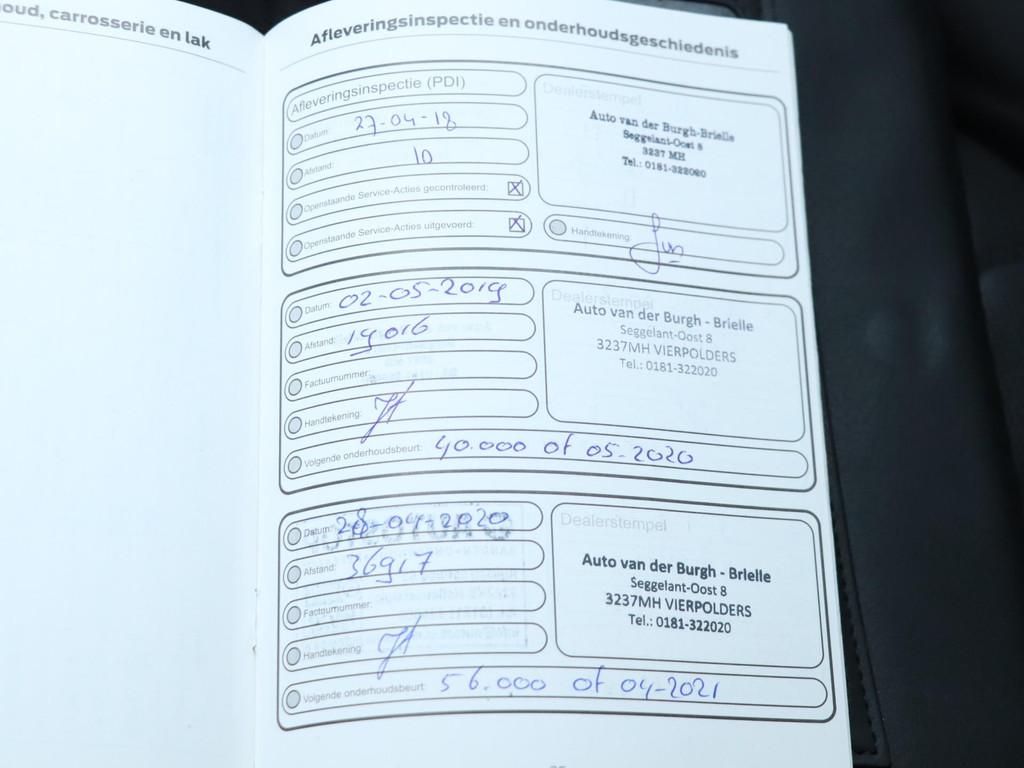 oud, carrosserie en lak
Afleveringsinspectie en onderhoudsgeschiedenis
Afleveringsinspectie (PDI)
Datum: 27-04-18
Afstand: 10
Openstaande Service-Acties gecontroleerd: X
Openstaande Service-Acties uitgevoerd: X
Dealerstempel
Auto van der Burgh-Brielle
Seggelant-Oost 8
3237 MH
Tel.: 0181-322020
Handtekening:
Datum: 02-05-2019
Afstand: 19016
Factuurnummer:
Handtekening:
Volgende onderhoudsbeurt: 40.000 of 05-2020
Dealerstempel
Auto van der Burgh - Brielle
Seggelant-Oost 8
3237MH VIERPOLDERS
Tel.: 0181-322020
Datum: 28-04-2020
Afstand: 36917
Factuurnummer:
Handtekening:
Volgende onderhoudsbeurt: 56.000 of 04-2021
Dealerstempel
Auto van der Burgh - Brielle
Seggelant-Oost 8
3237MH VIERPOLDERS
Tel.: 0181-322020